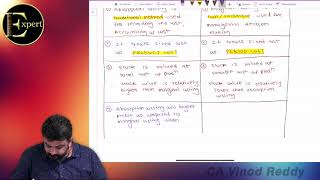 Expert
Absorption costing is
traditional method used
for recording the cost,
Accounting of cost
used for
managerial decision
making
② It treats fixed cost
as PRODUCT COST
② It treats fixed cost
as PERIOD COST
③ Stock is valued at
total cost of prodn
Stock value is relatively
higher than marginal costing
③ Stock is valued at
variable cost of prodn
Stock value is relatively
lower than absorption
costing
④ Absorption costing will
profit as compared to
marginal costing when
CA Vinod Reddy